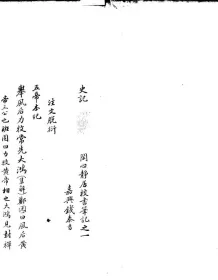 史記
閒心靜居校書筆記之一
嘉興錢泰吉
注文脫衍
五帝本紀
舉風后力牧常先大鴻 鄭𤣥曰風后黃
帝三公也班固曰力牧黃帝相也大鴻見封禪